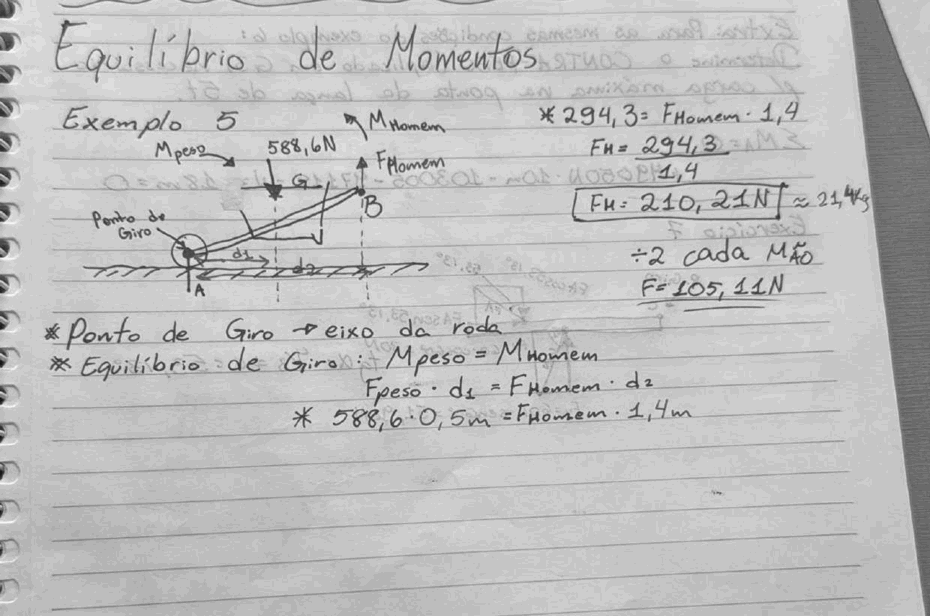 Equilíbrio de Momentos
Exemplo 5
Mpeso
588,6N
MHomem
FHomem
G
B
Ponto de
Giro
d1
d2
A
* 294,3 = FHomem · 1,4
FH = 294,3
1,4
FH = 210,21N ≈ 21,4Kg
÷2 cada MÃO
F = 105,11N
* Ponto de Giro → eixo da roda
* Equilíbrio de Giro: Mpeso = MHomem
Fpeso · d1 = FHomem · d2
* 588,6 · 0,5m = FHomem · 1,4m